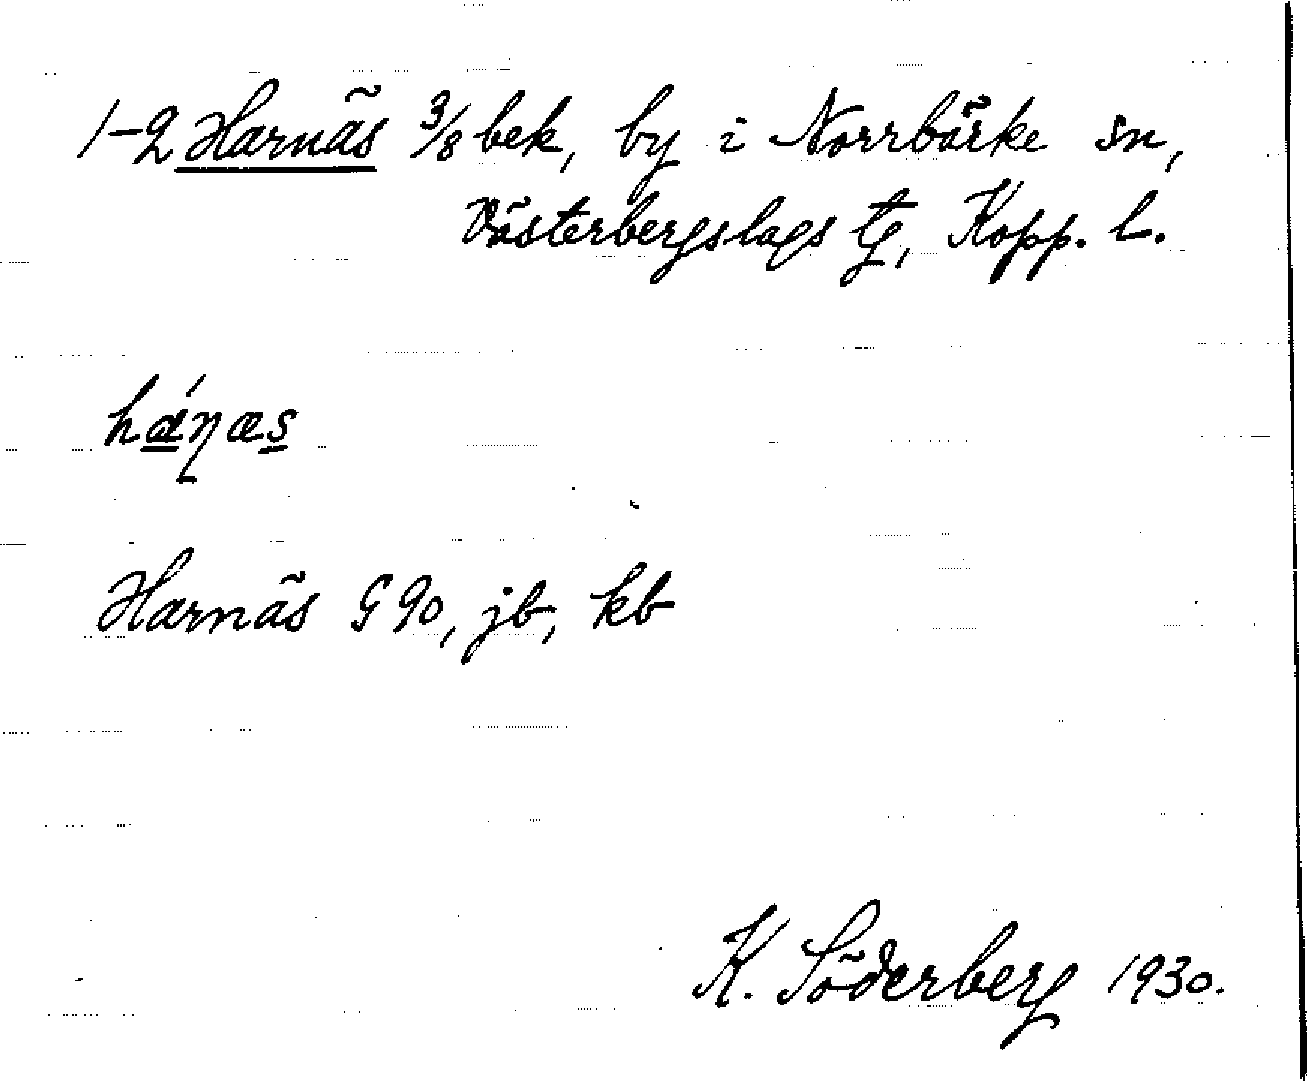 1-2 Harnäs 3/8 bek, by i Norrbärke sn,
Västerbergslags tg, Kopp. l.
hánæs
Harnäs G 90, jb, kb
K. Söderberg 1930.